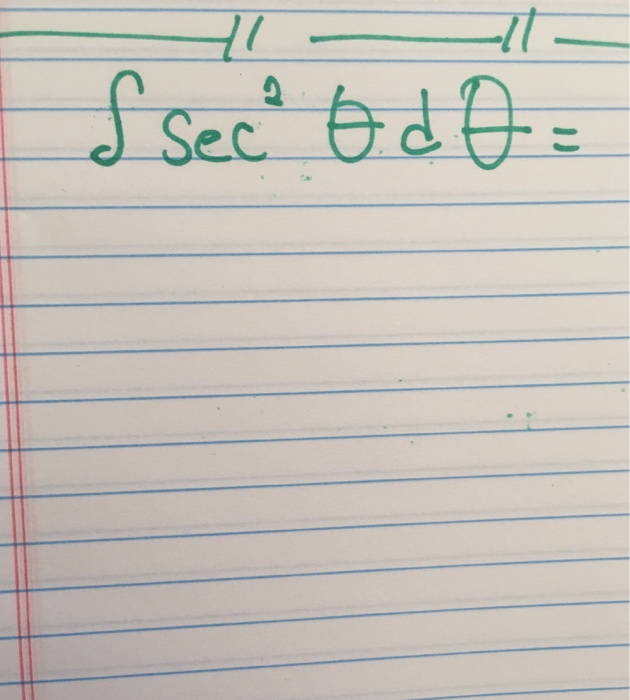 ∫ sec² θ dθ =